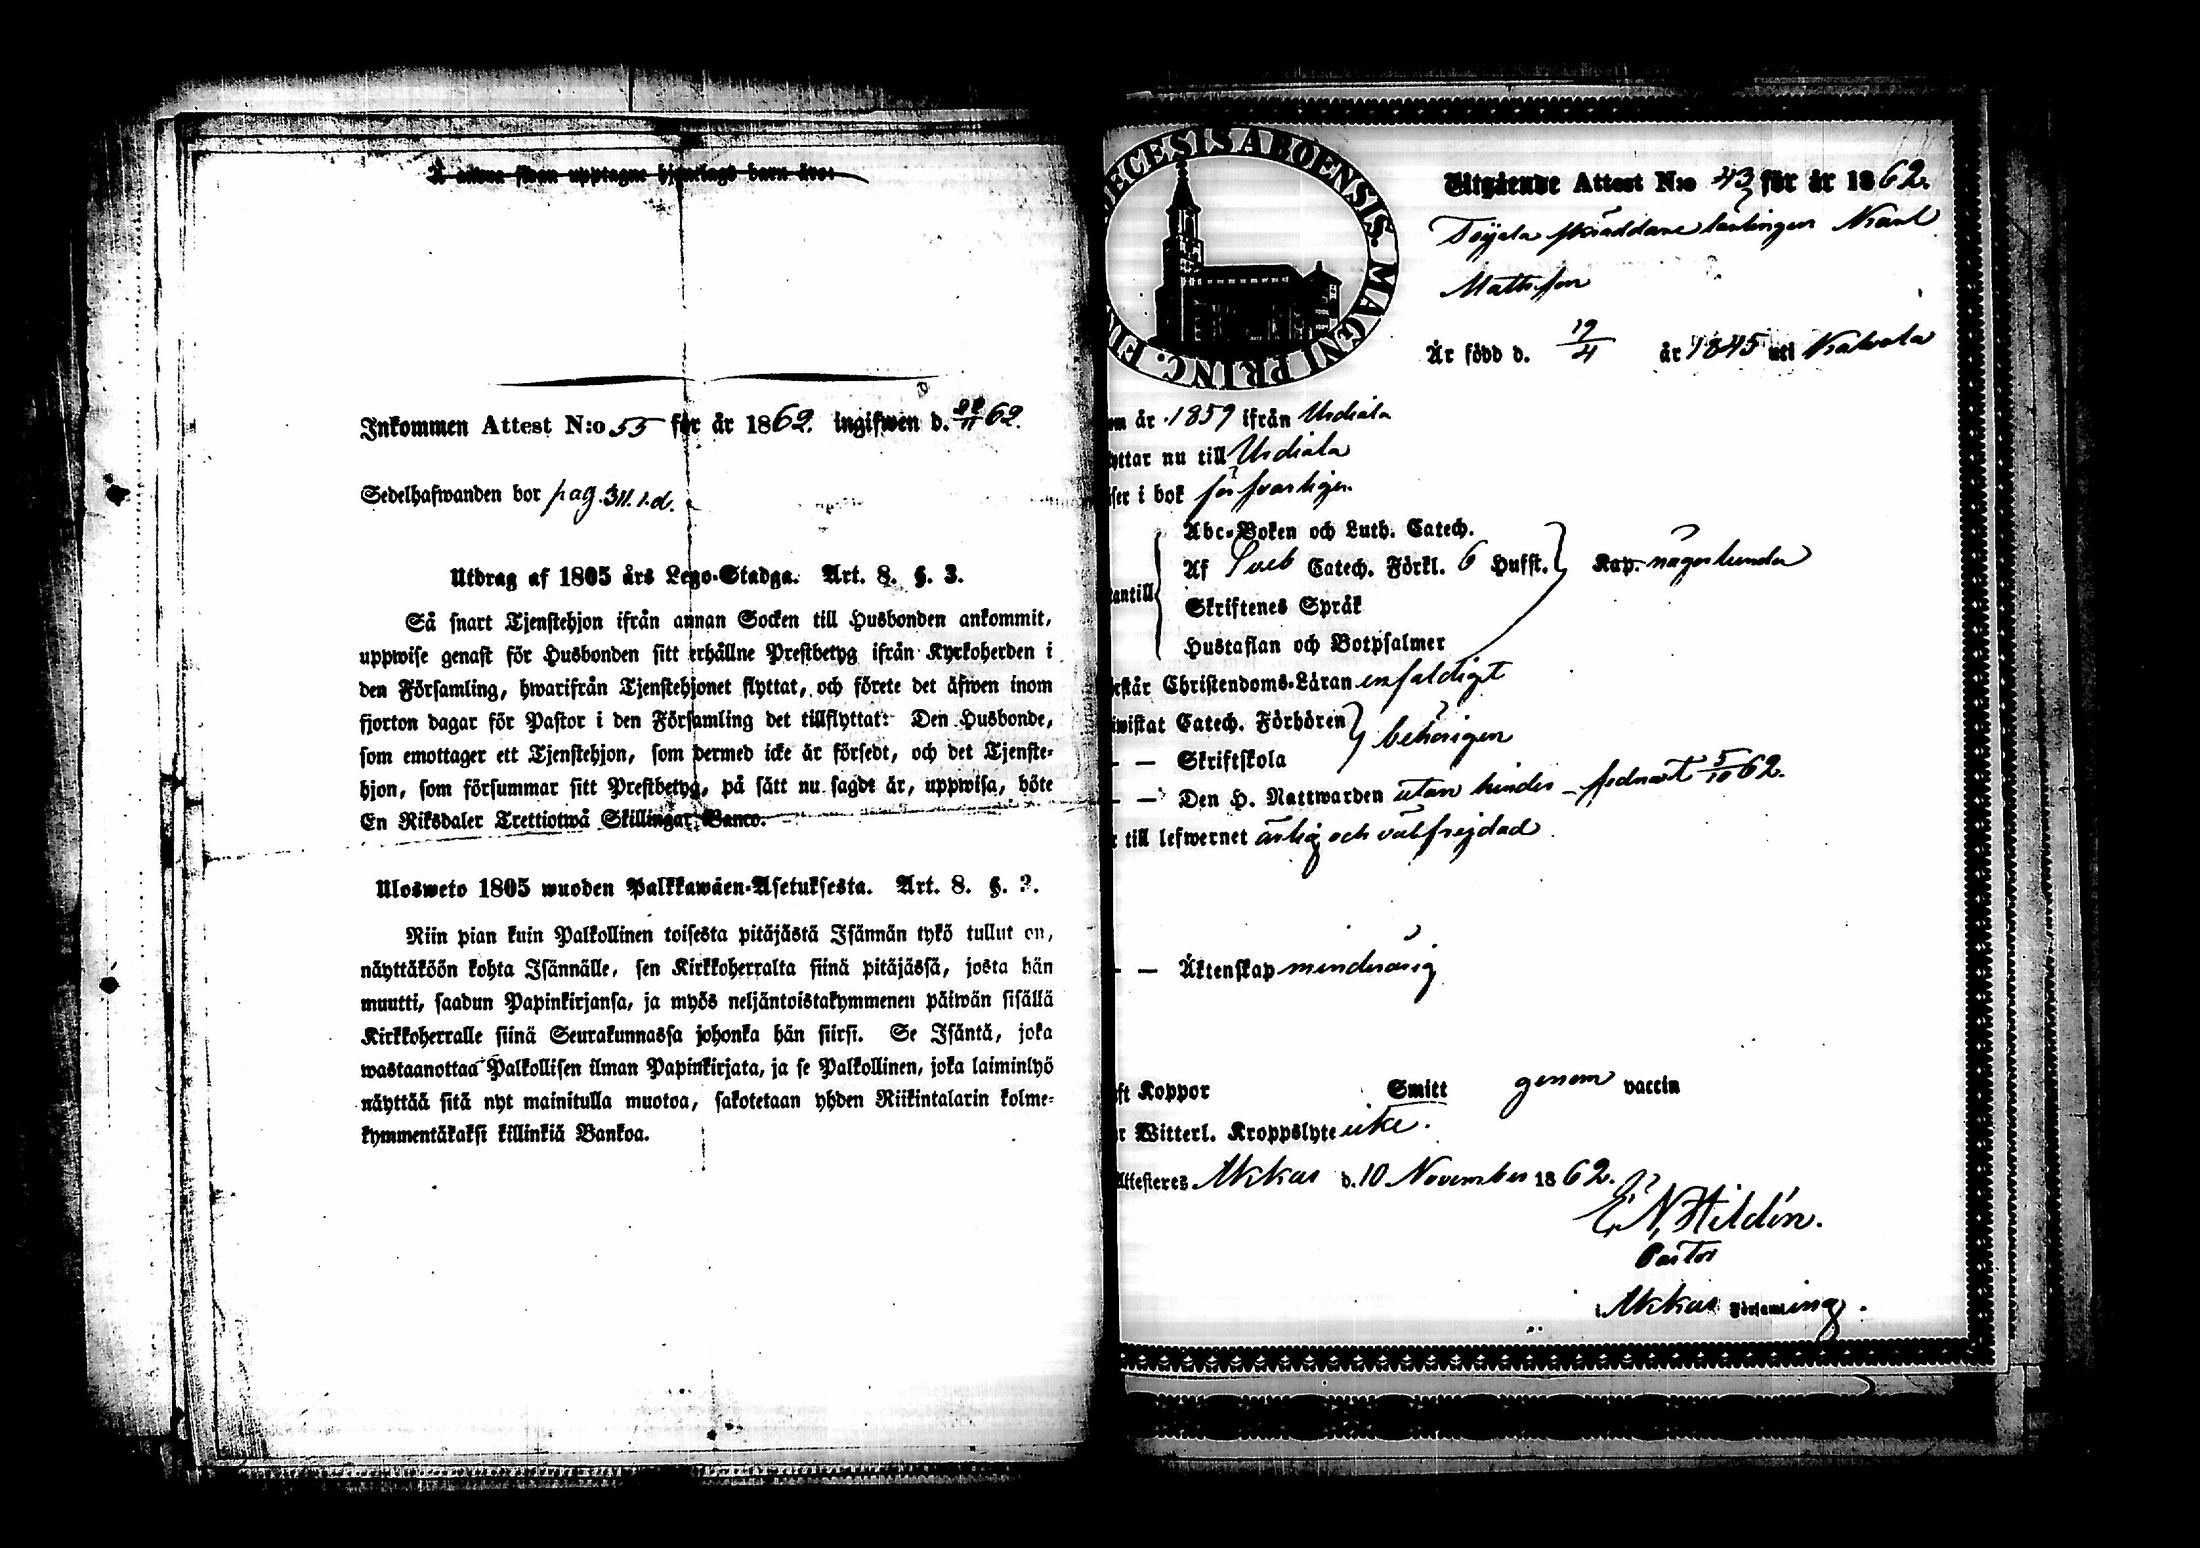 Inkommen Attest N:o 55 för år 1862. ingifwen d. 22/11 62.
Sedelhafwanden bor pag. 311. 1.d.
Utdrag af 1805 års Lego-Stadga. Art. 8. §. 3.
Så snart Tjenstehjon ifrån annan Socken till Husbonden ankommit,
uppwise genast för Husbonden sitt erhållne Prestbetyg ifrån Kyrkoherden i
den Församling, hwarifrån Tjenstehjonet flyttat, och förete det äfwen inom
fjorton dagar för Pastor i den Församling det tillflyttat: Den Husbonde,
som emottager ett Tjenstehjon, som dermed icke är försedt, och det Tjenste-
hjon, som försummar sitt Prestbetyg, på sätt nu sagdt är, uppwisa, böte
En Riksdaler Trettiotwå Skillingar Banco.
Ulosweto 1805 wuoden Palkkawäen-Asetuksesta. Art. 8. §. 3.
Niin pian kuin Palkollinen toisesta pitäjästä Isännän tykö tullut on,
näyttäköön kohta Isännälle, sen Kirkkoherralta siinä pitäjässä, josta hän
muutti, saadun Papinkirjansa, ja myös neljäntoistakymmenen päiwän sisällä
Kirkkoherralle siinä Seurakunnassa johonka hän siirsi. Se Isäntä, joka
wastaanottaa Palkollisen ilman Papinkirjata, ja se Palkollinen, joka laiminlyö
näyttää sitä nyt mainitulla muotoa, sakotetaan yhden Riikintalarin kolme-
kymmentäkaksi killinkiä Bankoa.
ECESIS ABOENSIS. MAGNI PRINC. FIN
Utgående Attest N:o 43 för år 1862.
Toijala skräddare lärlingen Karl
Mattsson
Är född d. 19/4 år 1845 uti Kalvola
om år 1859 ifrån Urdiala
yttar nu till Urdiala
ser i bok försvarligen
Abc-Boken och Luth. Catech.
Af Sveb Catech. Förkl. 6 Hufst. Kap. någorlunda
antill
Skriftenes Språk
Hustaflan och Botpsalmer
rstår Christendoms-Läran enfaldigt
iwistat Catech. Förhören behörigen
— — Skriftskola
— — Den H. Nattwarden utan hinder – sednast 5/10 62.
r till lefwernet ärlig och välfrejdad
— — Äktenskap minderårig
ft Koppor Smitt genom vaccin
r Witterl. Kroppslyte icke.
Attesteres Akkas d. 10 November 1862.
E N Hildén.
Pastor
i Akkas Församling.